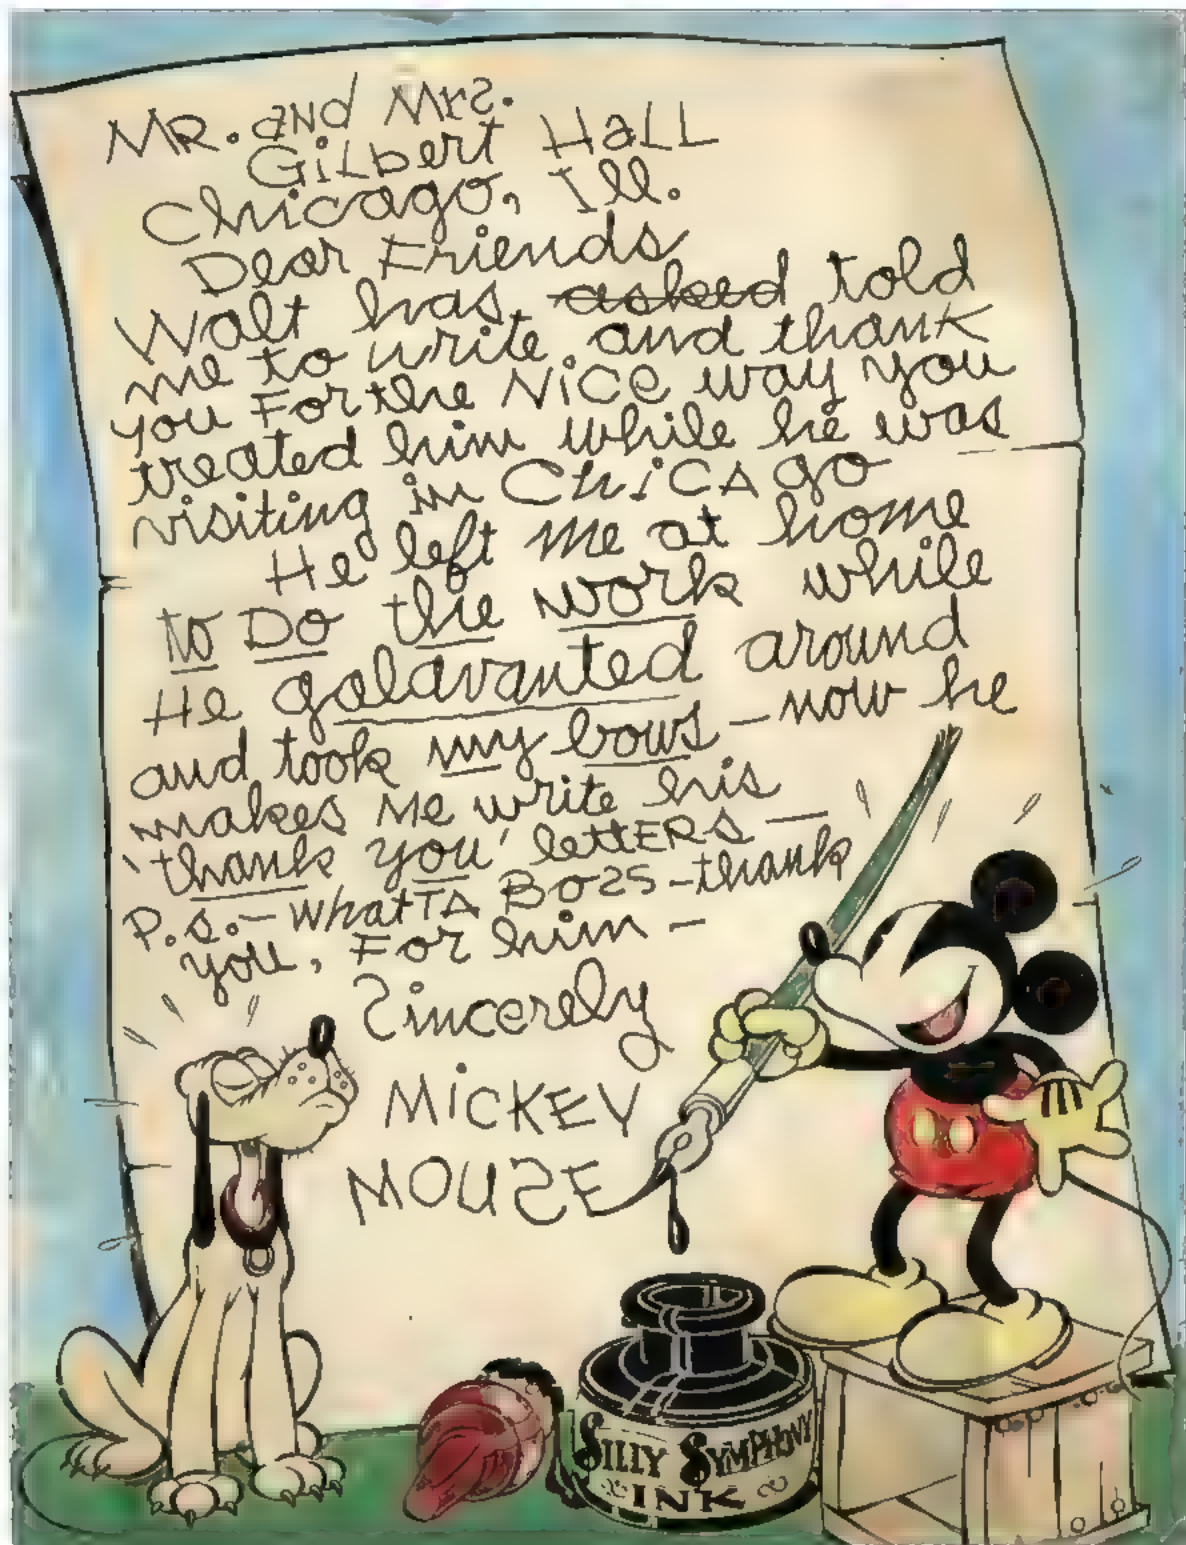 MR. and Mrs.
Gilbert Hall
Chicago, Ill.
Dear Friends
Walt has asked told
me to write and thank
you For the NiCe way you
treated him while he was
visiting in CHiCAgo
He left me at home
to Do the work while
He galavanted around
and took my bows – now he
makes Me write his
'thank you' lettERs –
P.s. – WhatTA BOSS – thank
you, For him –
Sincerely
MiCKEY
MOUSE
SILLY SYMPHONY
INK